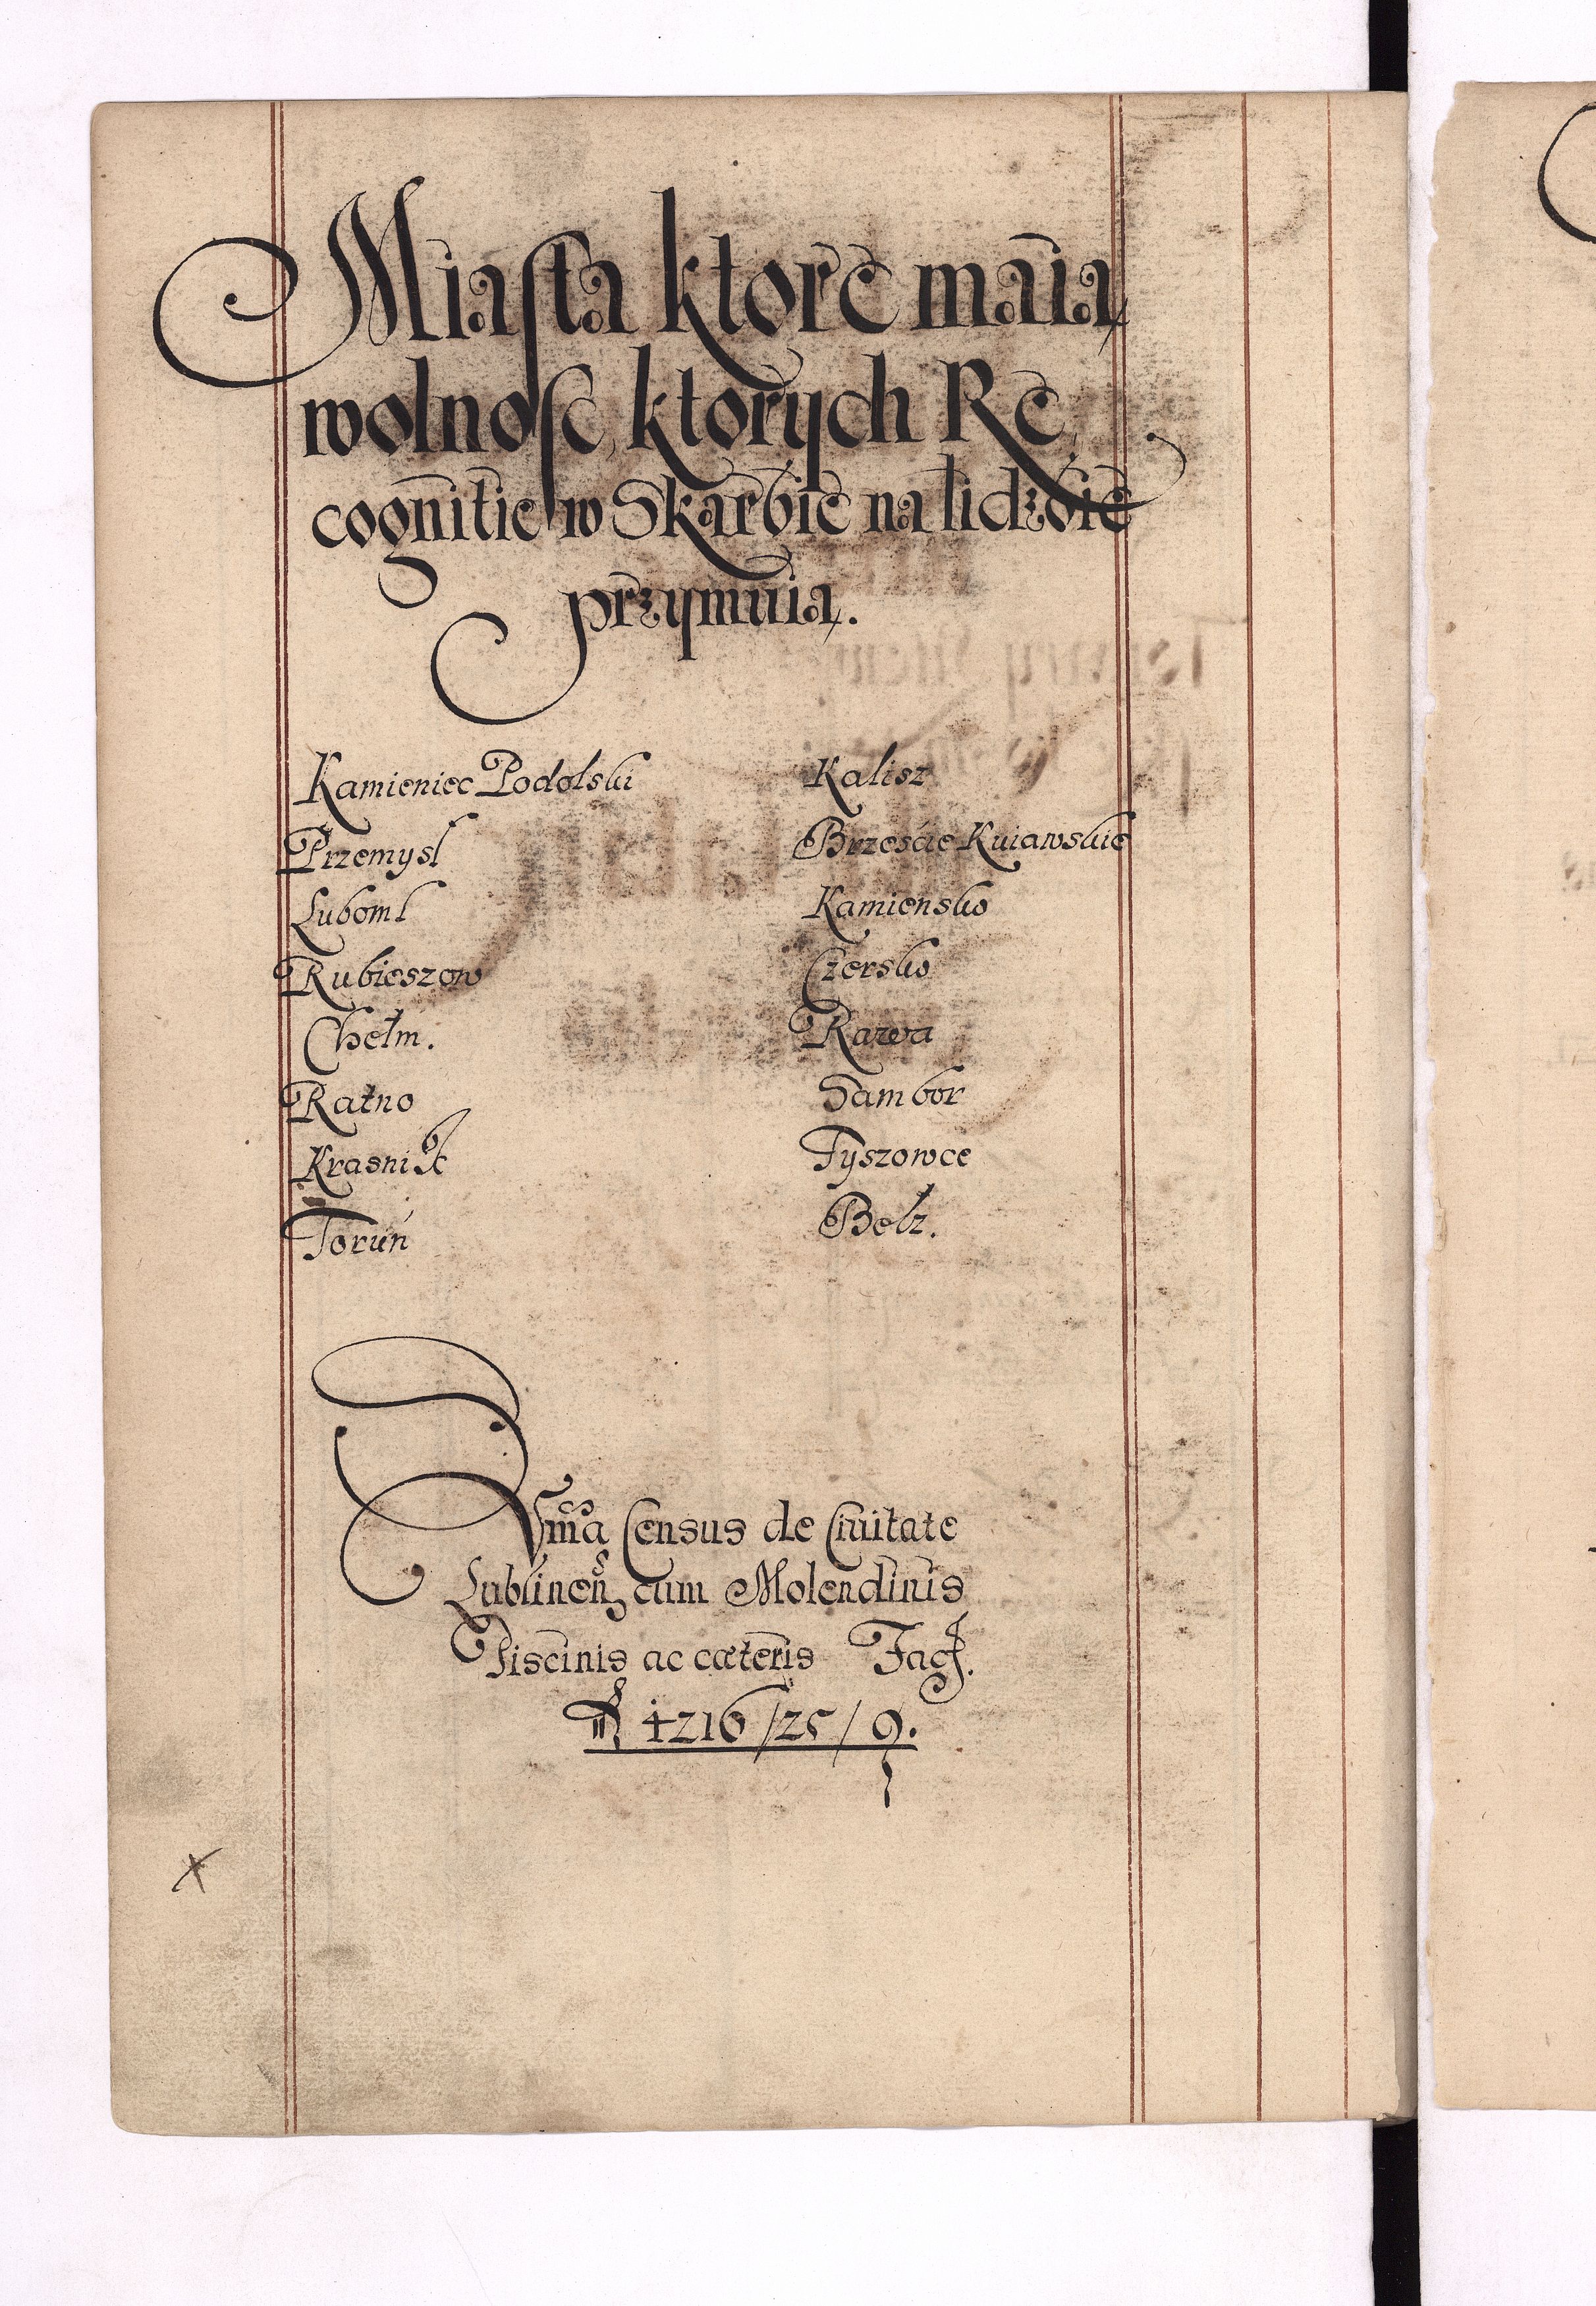 Miasta ktore maią
wolnosc, ktorych Re
cognitie w Skarbie na lidzbie
przymuią.
Kamieniec Podolski
Przemysl
Luboml
Rubieszow
Chełm.
Ratno
Krasnik
Toruń
Kalisz
Brzeście Kuiawskie
Kamiensko
Czersko
Rawa
Sambor
Tyszowce
Bełz.
Sum̃a Census de Ciuitate
Lublinen̄ cum Molendinis
Piscinis ac cæteris Fac̄t.
fl 4216/25/9.